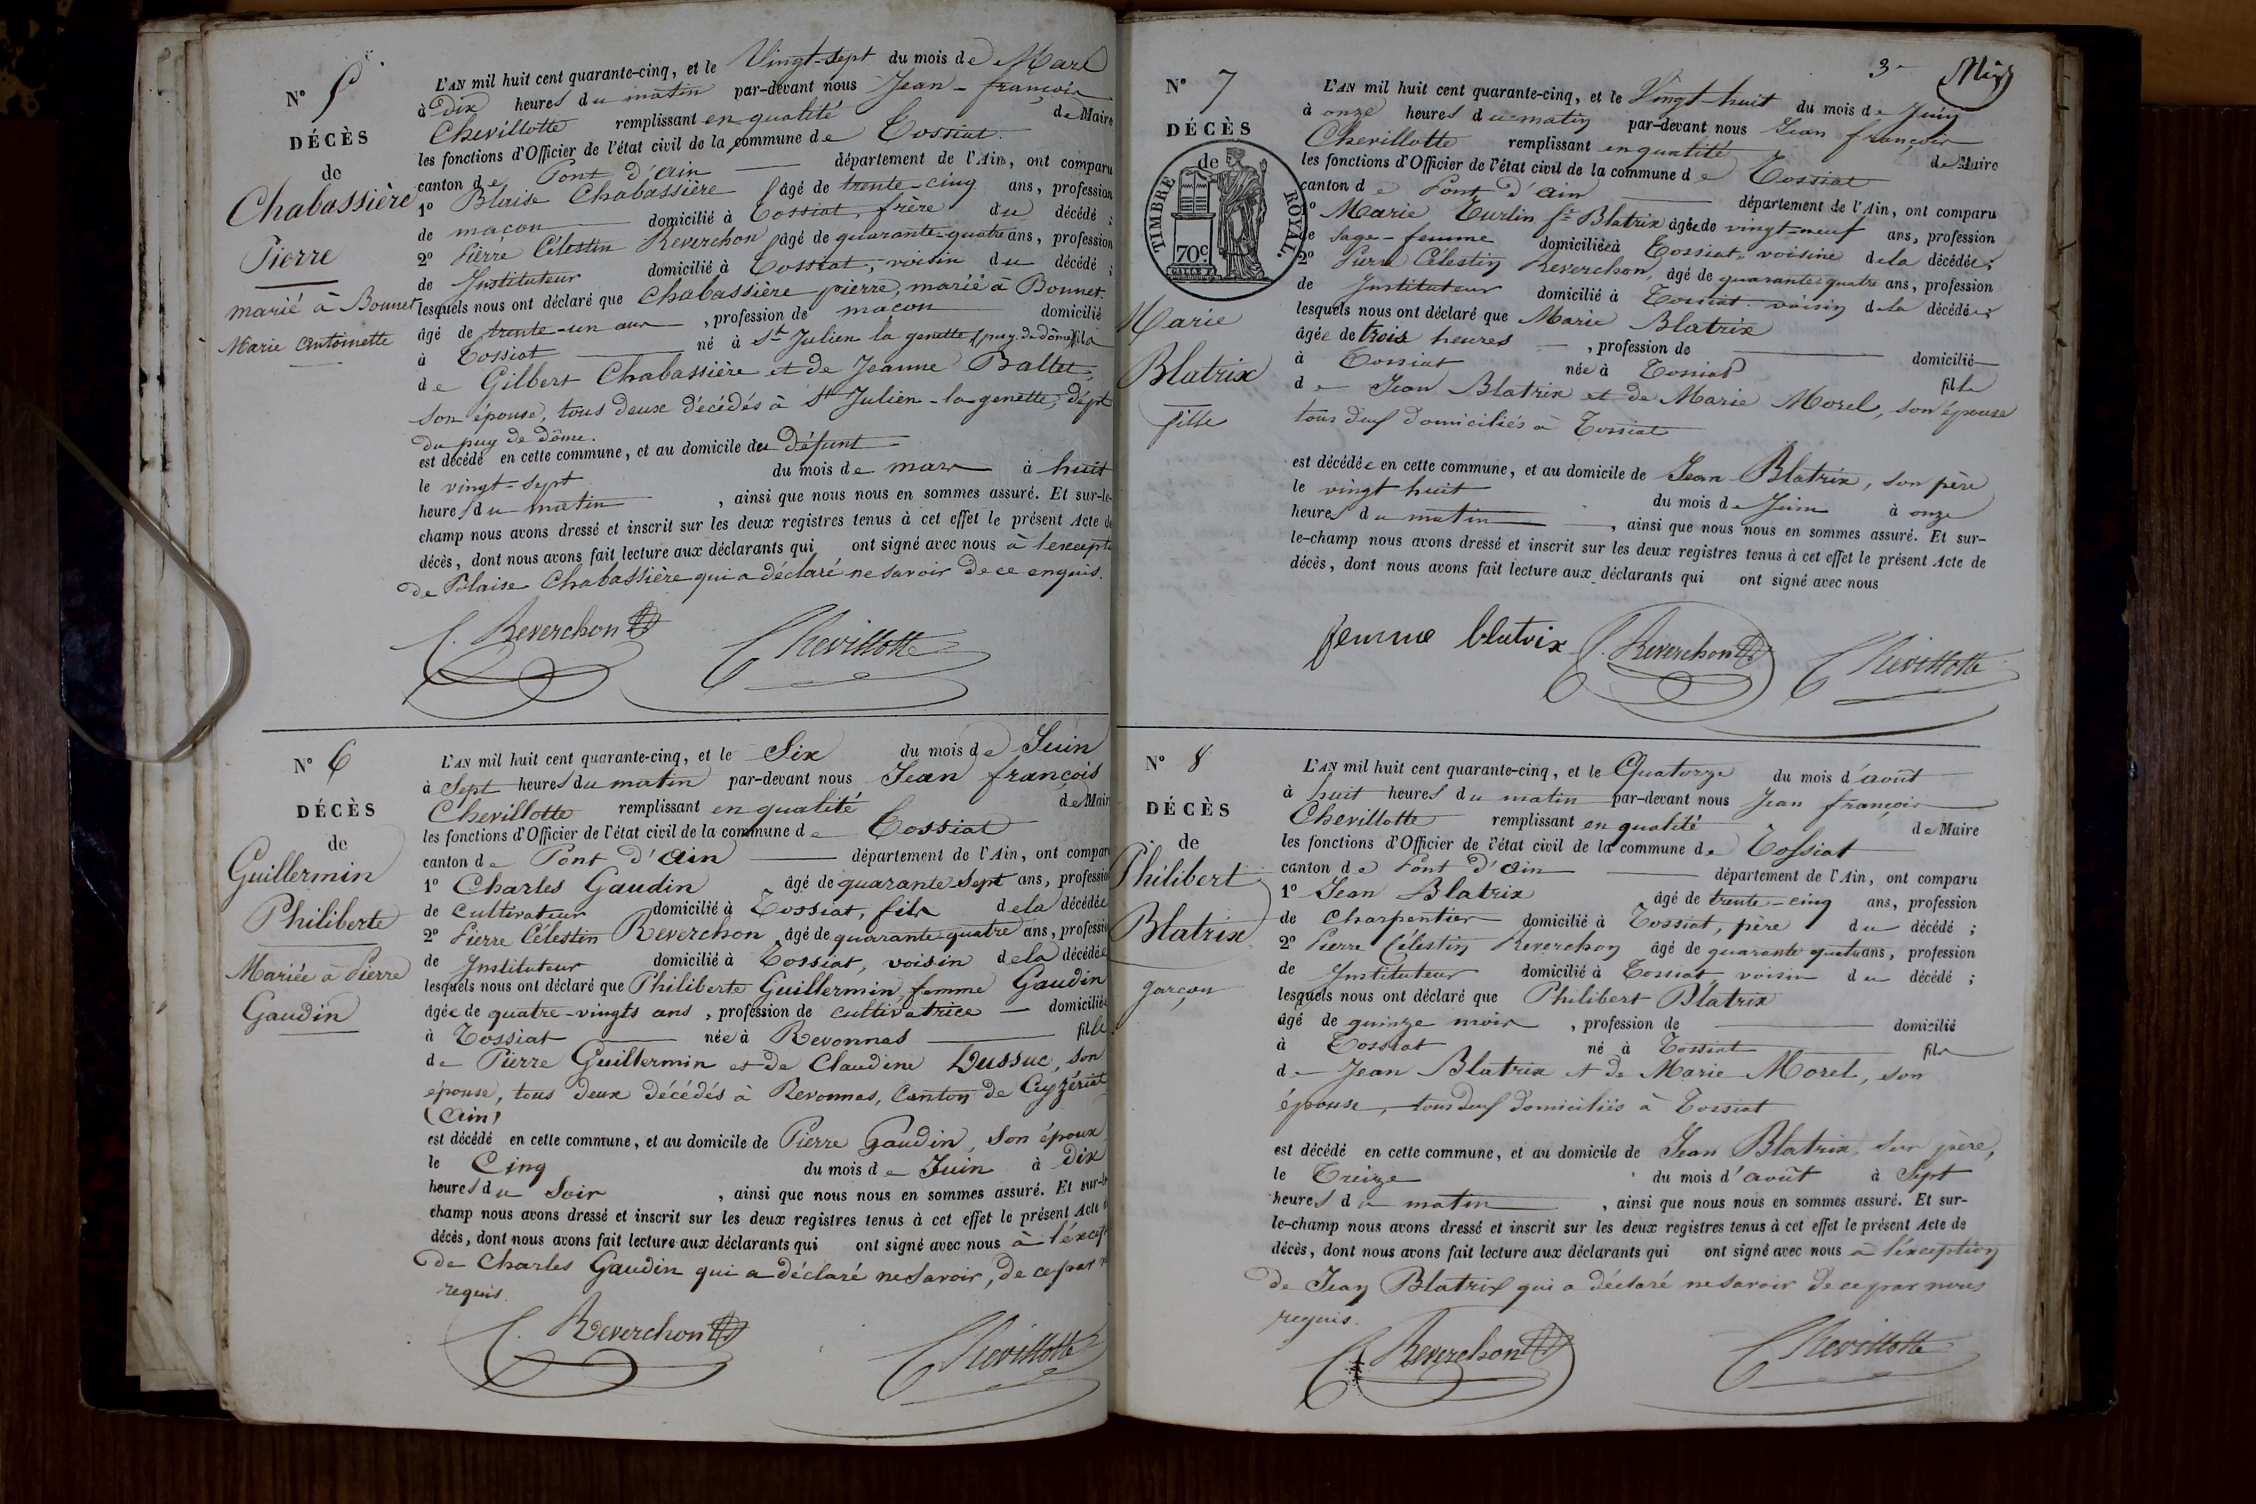 N° 5
DÉCÈS
de
Chabassière
Pierre
marié à Bonnet
Marie Antoinette
L'AN mil huit cent quarante-cinq, et le Vingt-sept du mois de Mars
à Dix heures du matin par-devant nous Jean-françois
Chevillotte remplissant en qualité de Maire
les fonctions d'Officier de l'état civil de la commune de Tossiat
canton de Pont d'ain département de l'Ain, ont comparu
1° Blaise Chabassière âgé de trente-cinq ans, profession
de maçon domicilié à Tossiat, frère du décédé ;
2° Pierre Célestin Reverchon âgé de quarante-quatre ans, profession
de Instituteur domicilié à Tossiat, voisin du décédé ;
lesquels nous ont déclaré que Chabassière pierre, marié à Bonnet
âgé de trente-un ans, profession de maçon domicilié
à Tossiat né à St Julien la genette (puy de dôme) fils
de Gilbert Chabassière et de Jeanne Baltet,
son épouse, tous deux décédés à St Julien-la-genette, dépt
du puy de dôme.
est décédé en cette commune, et au domicile du Défunt
le vingt-sept du mois de mars à huit
heures du matin, ainsi que nous nous en sommes assuré. Et sur-le-
champ nous avons dressé et inscrit sur les deux registres tenus à cet effet le présent Acte de
décès, dont nous avons fait lecture aux déclarants qui ont signé avec nous à l'except
de Blaise Chabassière qui a déclaré ne savoir de ce enquis.
C. Reverchon Chevillotte
N° 6
DÉCÈS
de
Guillermin
Philiberte
Mariée à Pierre
Gaudin
L'AN mil huit cent quarante-cinq, et le Six du mois de Juin
à Sept heures du matin par-devant nous Jean françois
Chevillotte remplissant en qualité de Mair
les fonctions d'Officier de l'état civil de la commune de Tossiat
canton de Pont d'Ain département de l'Ain, ont comparu
1° Charles Gaudin âgé de quarante-Sept ans, profession
de cultivateur domicilié à Tossiat, fils de la décédée
2° Pierre Célestin Reverchon, âgé de quarante-quatre ans, profession
de Instituteur domicilié à Tossiat, voisin de la décédée
lesquels nous ont déclaré que Philiberte Guillermin, femme Gaudin
âgée de quatre-vingts ans, profession de cultivatrice domiciliée
à Tossiat née à Revonnas fille
de Pierre Guillermin et de Claudine Dussuc, son
épouse, tous deux décédés à Revonnas, Canton de Ceyzériat
(Ain)
est décédé en cette commune, et au domicile de Pierre Gaudin, son époux
le Cinq du mois de Juin à Dix
heures du Soir, ainsi que nous nous en sommes assuré. Et sur-le-
champ nous avons dressé et inscrit sur les deux registres tenus à cet effet le présent Acte d
décès, dont nous avons fait lecture aux déclarants qui ont signé avec nous à l'except
de Charles Gaudin qui a déclaré ne savoir, de ce par n
requis.
C. Reverchon Chevillotte
3
N° 7
DÉCÈS
de
TIMBRE ROYAL.
70 c.
Marie
Blatrix
fille
L'AN mil huit cent quarante-cinq, et le Vingt-huit du mois de Juin
à onze heures du matin par-devant nous Jean françois
Chevillotte remplissant en qualité de Maire
les fonctions d'Officier de l'état civil de la commune de Tossiat
canton de Pont d'Ain département de l'Ain, ont comparu
1° Marie Turlin fe Blatrix âgée de vingt-neuf ans, profession
de sage-femme domiciliée à Tossiat, voisine de la décédée ;
2° Pierre Célestin Reverchon, âgé de quarante-quatre ans, profession
de Instituteur domicilié à Tossiat voisin de la décédée ;
lesquels nous ont déclaré que Marie Blatrix
âgée de trois heures, profession de domicilié
à Tossiat née à Tossiat fille
de Jean Blatrix et de Marie Morel, son épouse
tous deux domiciliés à Tossiat
est décédée en cette commune, et au domicile de Jean Blatrix, son père
le vingt huit du mois de Juin à onze
heures du matin, ainsi que nous nous en sommes assuré. Et sur-
le-champ nous avons dressé et inscrit sur les deux registres tenus à cet effet le présent Acte de
décès, dont nous avons fait lecture aux déclarants qui ont signé avec nous
femme blatrix C. Reverchon Chevillotte
N° 8
DÉCÈS
de
Philibert
Blatrix
garçon
L'AN mil huit cent quarante-cinq, et le Quatorze du mois d'août
à huit heures du matin par-devant nous Jean françois
Chevillotte remplissant en qualité de Maire
les fonctions d'Officier de l'état civil de la commune de Tossiat
canton de Pont d'Ain département de l'Ain, ont comparu
1° Jean Blatrix âgé de trente-cinq ans, profession
de charpentier domicilié à Tossiat, père du décédé ;
2° Pierre Célestin Reverchon âgé de quarante quatre ans, profession
de Instituteur domicilié à Tossiat, voisin du décédé ;
lesquels nous ont déclaré que Philibert Blatrix
âgé de quinze mois, profession de domicilié
à Tossiat né à Tossiat fils
de Jean Blatrix et de Marie Morel, son
épouse, tous deux domiciliés à Tossiat
est décédé en cette commune, et au domicile de Jean Blatrix, son père,
le Treize du mois d'août à Sept
heures du matin, ainsi que nous nous en sommes assuré. Et sur-
le-champ nous avons dressé et inscrit sur les deux registres tenus à cet effet le présent Acte de
décès, dont nous avons fait lecture aux déclarants qui ont signé avec nous à l'exception
de Jean Blatrix qui a déclaré ne savoir de ce par nous
requis.
C. Reverchon Chevillotte